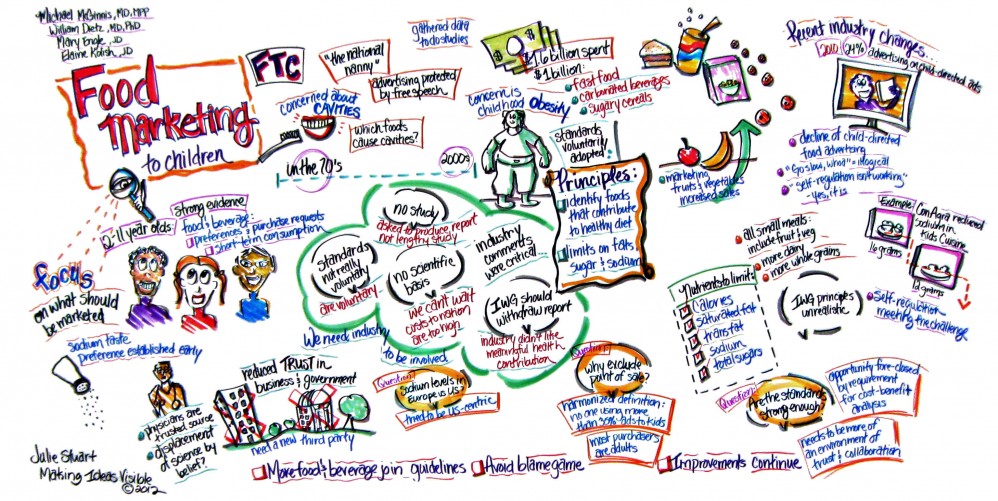 Michael McGinnis, MD, MPP
William Dietz, MD, PhD
Mary Engle, JD
Elaine Kolish, JD
Food
Marketing
to children
FTC
"the national
nanny"
advertising protected
by free speech
concerned about
CAVITIES
which foods
cause cavities?
in the 70's
2000s
gathered data
to do studies
$1.6 billion spent
$1 billion:
fast food
carbonated beverages
sugary cereals
concern is
childhood obesity
standards
voluntarily
adopted
Principles:
identify foods
that contribute
to healthy diet
limits on fats,
sugar & sodium
marketing
fruits & vegetables
increased sales
Recent industry changes...
2010
advertising on child-directed ads
decline of child-directed
food advertising
"Go slow, whoa" = illogical
"self-regulation isn't working"
- yes, it is
Example: ConAgra reduced
sodium in
Kids Cuisine
16 grams
12 grams
strong evidence
2-11 year olds
food & beverage:
preferences & purchase requests
short term consumption
focus
on what should
be marketed
sodium taste
preference established early
no study
asked to produce report
not lengthy study
standards
not really
voluntary
are voluntary
no scientific
basis
we can't wait
costs to nation
are too high
industry
comments
were critical...
IWG should
withdraw report
industry didn't like
meaningful health
contribution
We need industry
to be involved
all small meals:
include fruit & veg
more dairy
more whole grains
Nutrients to limit:
calories
saturated fat
trans fat
sodium
total sugars
IWG principles
unrealistic
Self-regulation
meeting the challenge
physicians are
trusted source
displacement
of science by
belief?
reduced TRUST in
business & government
need a new third party
Question:
Sodium levels in
Europe vs US?
tried to be US-centric
Question:
Why exclude
point of sale?
harmonized definition:
no one using more
than 50% ads to kids
most purchasers
are adults
Question:
Are the standards
strong enough?
opportunity fore-closed
by requirement
for cost-benefit
analysis
needs to be more of
an environment of
trust & collaboration
More food & beverage join guidelines
Avoid blame game
Improvements continue
Julie Stuart
Making Ideas Visible
©2012